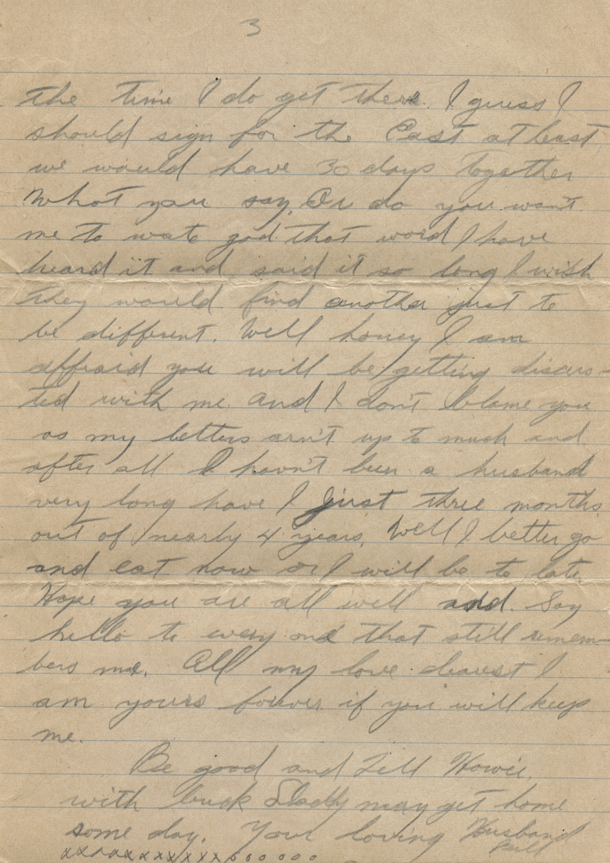 3
the time I do get there. I guess I
should sign for the East at least
we would have 30 days together
What you say. Or do you want
me to wate god that word I have
heard it and said it so long I wish
they would find another just to
be different. Well honey I am
affraid you will be getting discus-
ted with me and I don't blame you
as my letters arn't up to much and
after all I havn't been a husband
very long have I just three months
out of nearly 4 years. Well I better go
and eat now or I will be to late.
Hope you are all well and. Say
hello to every one that still remem-
bers me. All my love dearest I
am yours forever if you will keep
me.
Be good and tell Howie,
with luck Daddy may get home
some day. Your loving Husband
Bill
xxxxxxxxxxxooooooo